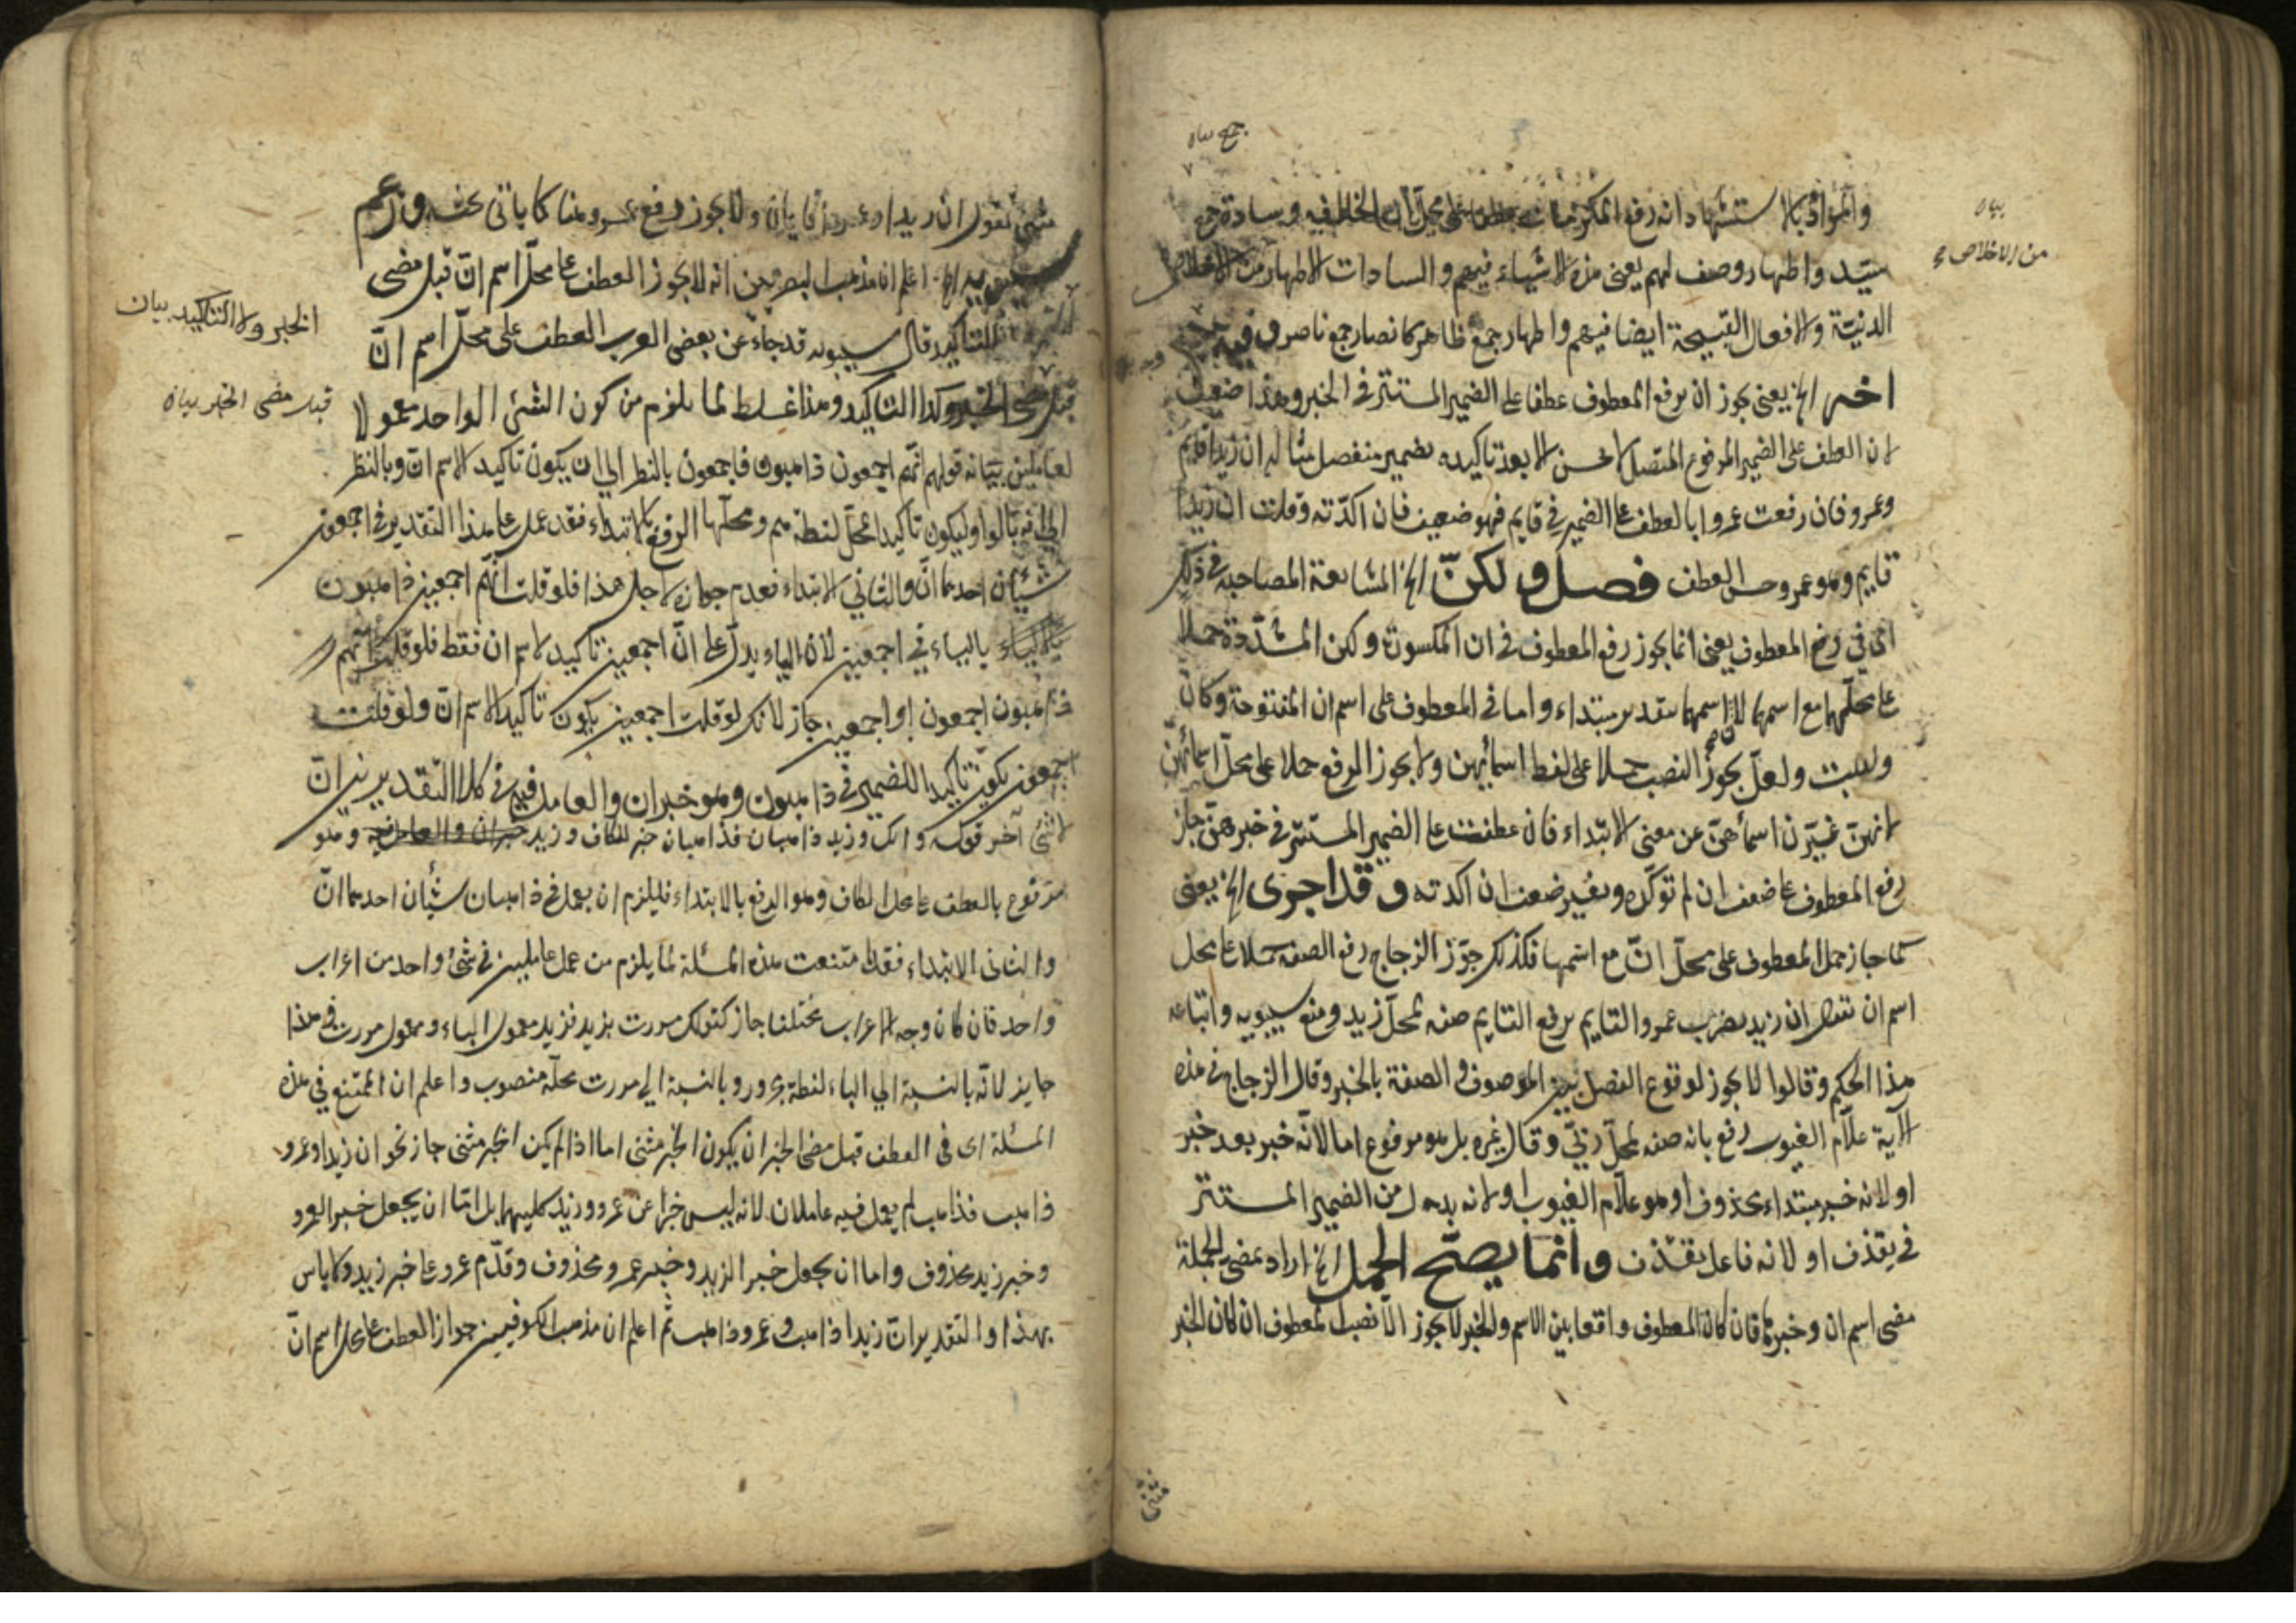 جمع بيان
والمراد بالاستشهاد انه رفع المكرمات عطفا على محل ان الخلافة فيه وسادة جمع
بيان
سيد واطهار وصف لهم يعنى هذه الاشياء فيهم والسادات الاطهار من الاخلاص
من الاخلاص
الدنيّة والافعال القبيحة ايضا فيهم واطهار جمع طاهر كانصار جمع ناصر وفيه
اخر الخ يعنى يجوز ان يرفع المعطوف عطفا على الضمير المستتر فى الخبر وهذا ضعيف
لان العطف على الضمير المرفوع المتصل لا يحسن الا بعد تاكيده بضمير منفصل مثاله ان زيدا قايم
وعمرو فان رفعت عمروا بالعطف على الضمير فى قايم فهو ضعيف فان اكدّته وقلت ان زيدا
قايم هو وعمرو حسن العطف فصل ولكنّ الخ المشايعة المصاحبة فى ذلك
اى فى رفع المعطوف يعنى انما يجوز رفع المعطوف فى ان المكسورة ولكن المشدّدة حملا
على محلّهما مع اسمهما لان اسمهما بتقدير مبتداء واما فى المعطوف على اسم ان المفتوحة وكان
وليت ولعلّ يجوز النصب حملا على لفظ اسمائهن ولا يجوز الرفع حملا على محلّ اسمائهنّ
لانهنّ غيّرن اسمائهنّ عن معنى الابتداء فان عطفت على الضمير المستتر فى خبرهنّ جاز
رفع المعطوف على ضعف ان لم توكّده وبغير ضعف ان اكدته وقد اجرى الخ يعنى
كما جاز حمل المعطوف على محلّ انّ مع اسمها فكذلك جوّز الزجاج رفع الصفة حملا على محل
اسم ان تقول ان زيد يضرب عمرو القايم برفع القايم صفة لمحلّ زيد ومنع سيبويه واتباعه
هذا الحكم وقالوا لا يجوز لوقوع الفصل بين الموصوف والصفة بالخبر وقال الزجاج فى هذه
الآية علّام الغيوب رفع بانه صفة لمحلّ ربّى وقال غيره بل هو مرفوع اما لانّه خبر بعد خبر
او لانه خبر مبتداء محذوف او هو علّام الغيوب او لانه بدل من الضمير المستتر
فى يقذف او لانه فاعل يقذف وانما يصحّ الحمل الخ اراد بمضى الجملة
مضى اسم ان وخبرها فان كان المعطوف واقعا بين الاسم والخبر لا يجوز الا نصب المعطوف ان كان الخبر
مثنى تقول ان زيدا وعمروا قايمان ولا يجوز رفع عمرو هنا كما ياتى بحثه وزعم
سيبويه الخ اعلم ان مذهب البصريين انه لا يجوز العطف على محلّ اسم انّ قبل مضى
الخبر ولا التاكيد بيان
التاكيد قال سيبويه قد جاء عن بعض العرب العطف على محلّ اسم انّ
قبل مضى الخبر بيان
قبل مضى الخبر وكذا التاكيد وهذا غلط لما يلزم من كون الشئ الواحد معمولا
لعاملين بيانه قولهم انّهم اجمعون ذاهبون فاجمعون بالنظر الى ان يكون تاكيد الاسم ان وبالنظر
الى انه بالواو ليكون تاكيدا لمحلّ لفظة هم ومحلّها الرفع بالابتداء فقد عمل على هذا التقدير فى اجمعون
شيئان احدهما انّ والثانى الابتداء فعدم جوازه لاجل هذا فلو قلت انّهم اجمعين ذاهبون
بالياء فى اجمعين لان الياء يدلّ على انّ اجمعين تاكيد لاسم ان فقط فلو قلت انّهم
ذاهبون اجمعون او اجمعين جاز لانك لو قلت اجمعين يكون تاكيد الاسم انّ ولو قلت
اجمعون يكون تاكيدا للضمير فى ذاهبون وهو خبر ان والعامل فيه فى كلا التقديرين انّ
لا شئ آخر قوله وانك وزيد ذاهبان فذاهبان خبر للكاف وزيد خبر ان والعامل فيه وهو
مرفوع بالعطف على محل الكاف وهو الرفع بالابتداء فليلزم ان يعمل فى ذاهبان شيئان احدهما انّ
والثانى الابتداء فقد امتنعت هذه المسئلة لما يلزم من عمل عاملين فى شئ واحد من اعراب
واحد فان كان وجه الاعراب مختلفا جاز كقولك مررت بزيد فزيد معمول الباء ومعمول مررت فى هذا
جايز لانّه بالنسبة الى الباء لفظة مجرور وبالنسبة الى مررت محلّه منصوب واعلم ان الممتنع فى هذه
المسئلة اى فى العطف قبل مضى الخبر ان يكون الخبر مثنى اما اذا لم يكن الخبر مثنى جاز نحو ان زيدا وعمرو
ذاهب فذاهب لم يعمل فيه عاملان لانه ليس خبرا عن عمرو وزيد كليهما بل اما ان يجعل خبر العمرو
وخبر زيد محذوف واما ان يجعل خبر الزيد وخبر عمرو محذوف وقدّم عمرو على خبر زيد ولا باس
بهذا والتقدير انّ زيدا ذاهب وعمرو ذاهب ثم اعلم ان مذهب الكوفيين جواز العطف على محل اسم انّ